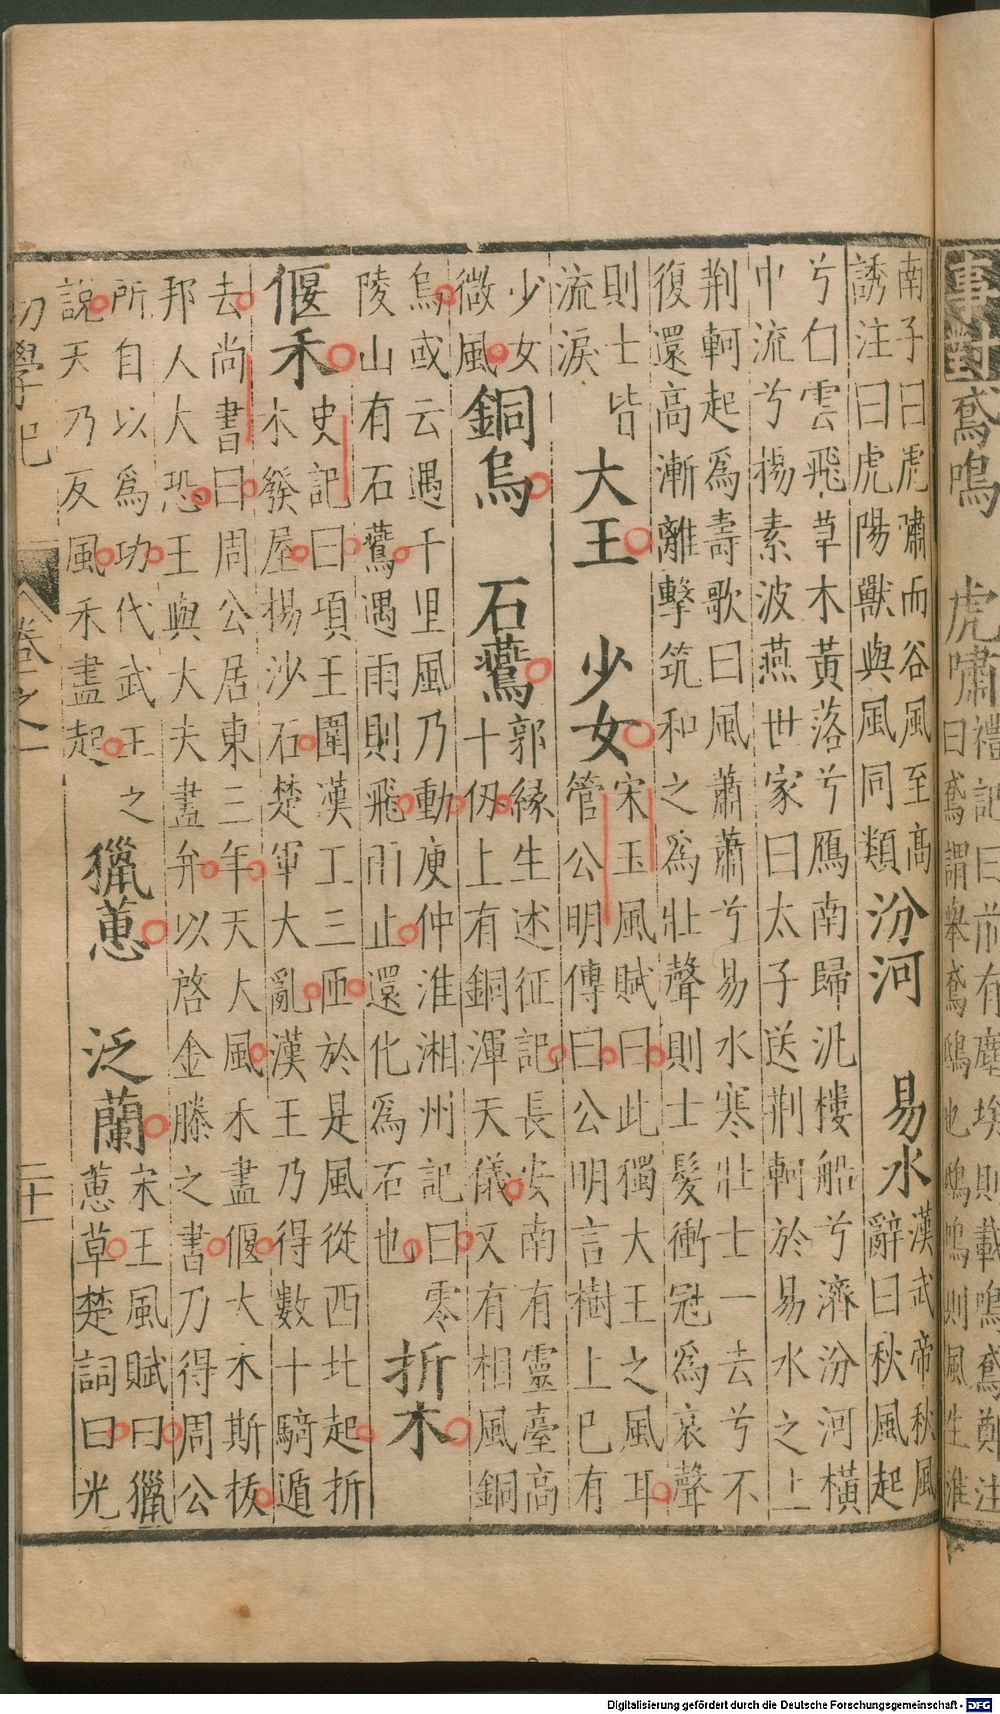 事對 鳶鳴 虎嘯
禮記曰前有塵埃則載鳴鳶鄭注
曰鳶謂舉鳶鴟也鴟鳴則風生淮
南子曰虎嘯而谷風至高
誘注曰虎陽獸與風同類
汾河 易水
漢武帝秋風
辭曰秋風起
兮白雲飛草木黃落兮鴈南歸汎樓船兮濟汾河橫
中流兮揚素波燕世家曰太子送荆軻於易水之上
荆軻起爲壽歌曰風蕭蕭兮易水寒壯士一去兮不
復還高漸離擊筑和之爲壯聲則士髮衝冠爲哀聲
則士皆
流淚
大王 少女
宋玉風賦曰此獨大王之風耳
管公明傳曰公明言樹上巳有
少女
微風
銅烏 石鷰
郭緣生述征記長安南有靈臺高
十仭上有銅渾天儀又有相風銅
烏或云遇千里風乃動庾仲淮湘州記曰零
陵山有石鷰遇雨則飛雨止還化爲石也
折木
偃禾
史記曰項王圍漢工三匝於是風從西北起折
木發屋揚沙石楚軍大亂漢王乃得數十騎遁
去尚書曰周公居東三年天大風禾盡偃大木斯拔
邦人大恐王與大夫盡弁以啓金縢之書乃得周公
所自以爲功代武王之
說天乃反風禾盡起
獵蕙 泛蘭
宋王風賦曰獵
蕙草楚詞曰光
初學記 卷之一 二十一
Digitalisierung gefördert durch die Deutsche Forschungsgemeinschaft - DFG